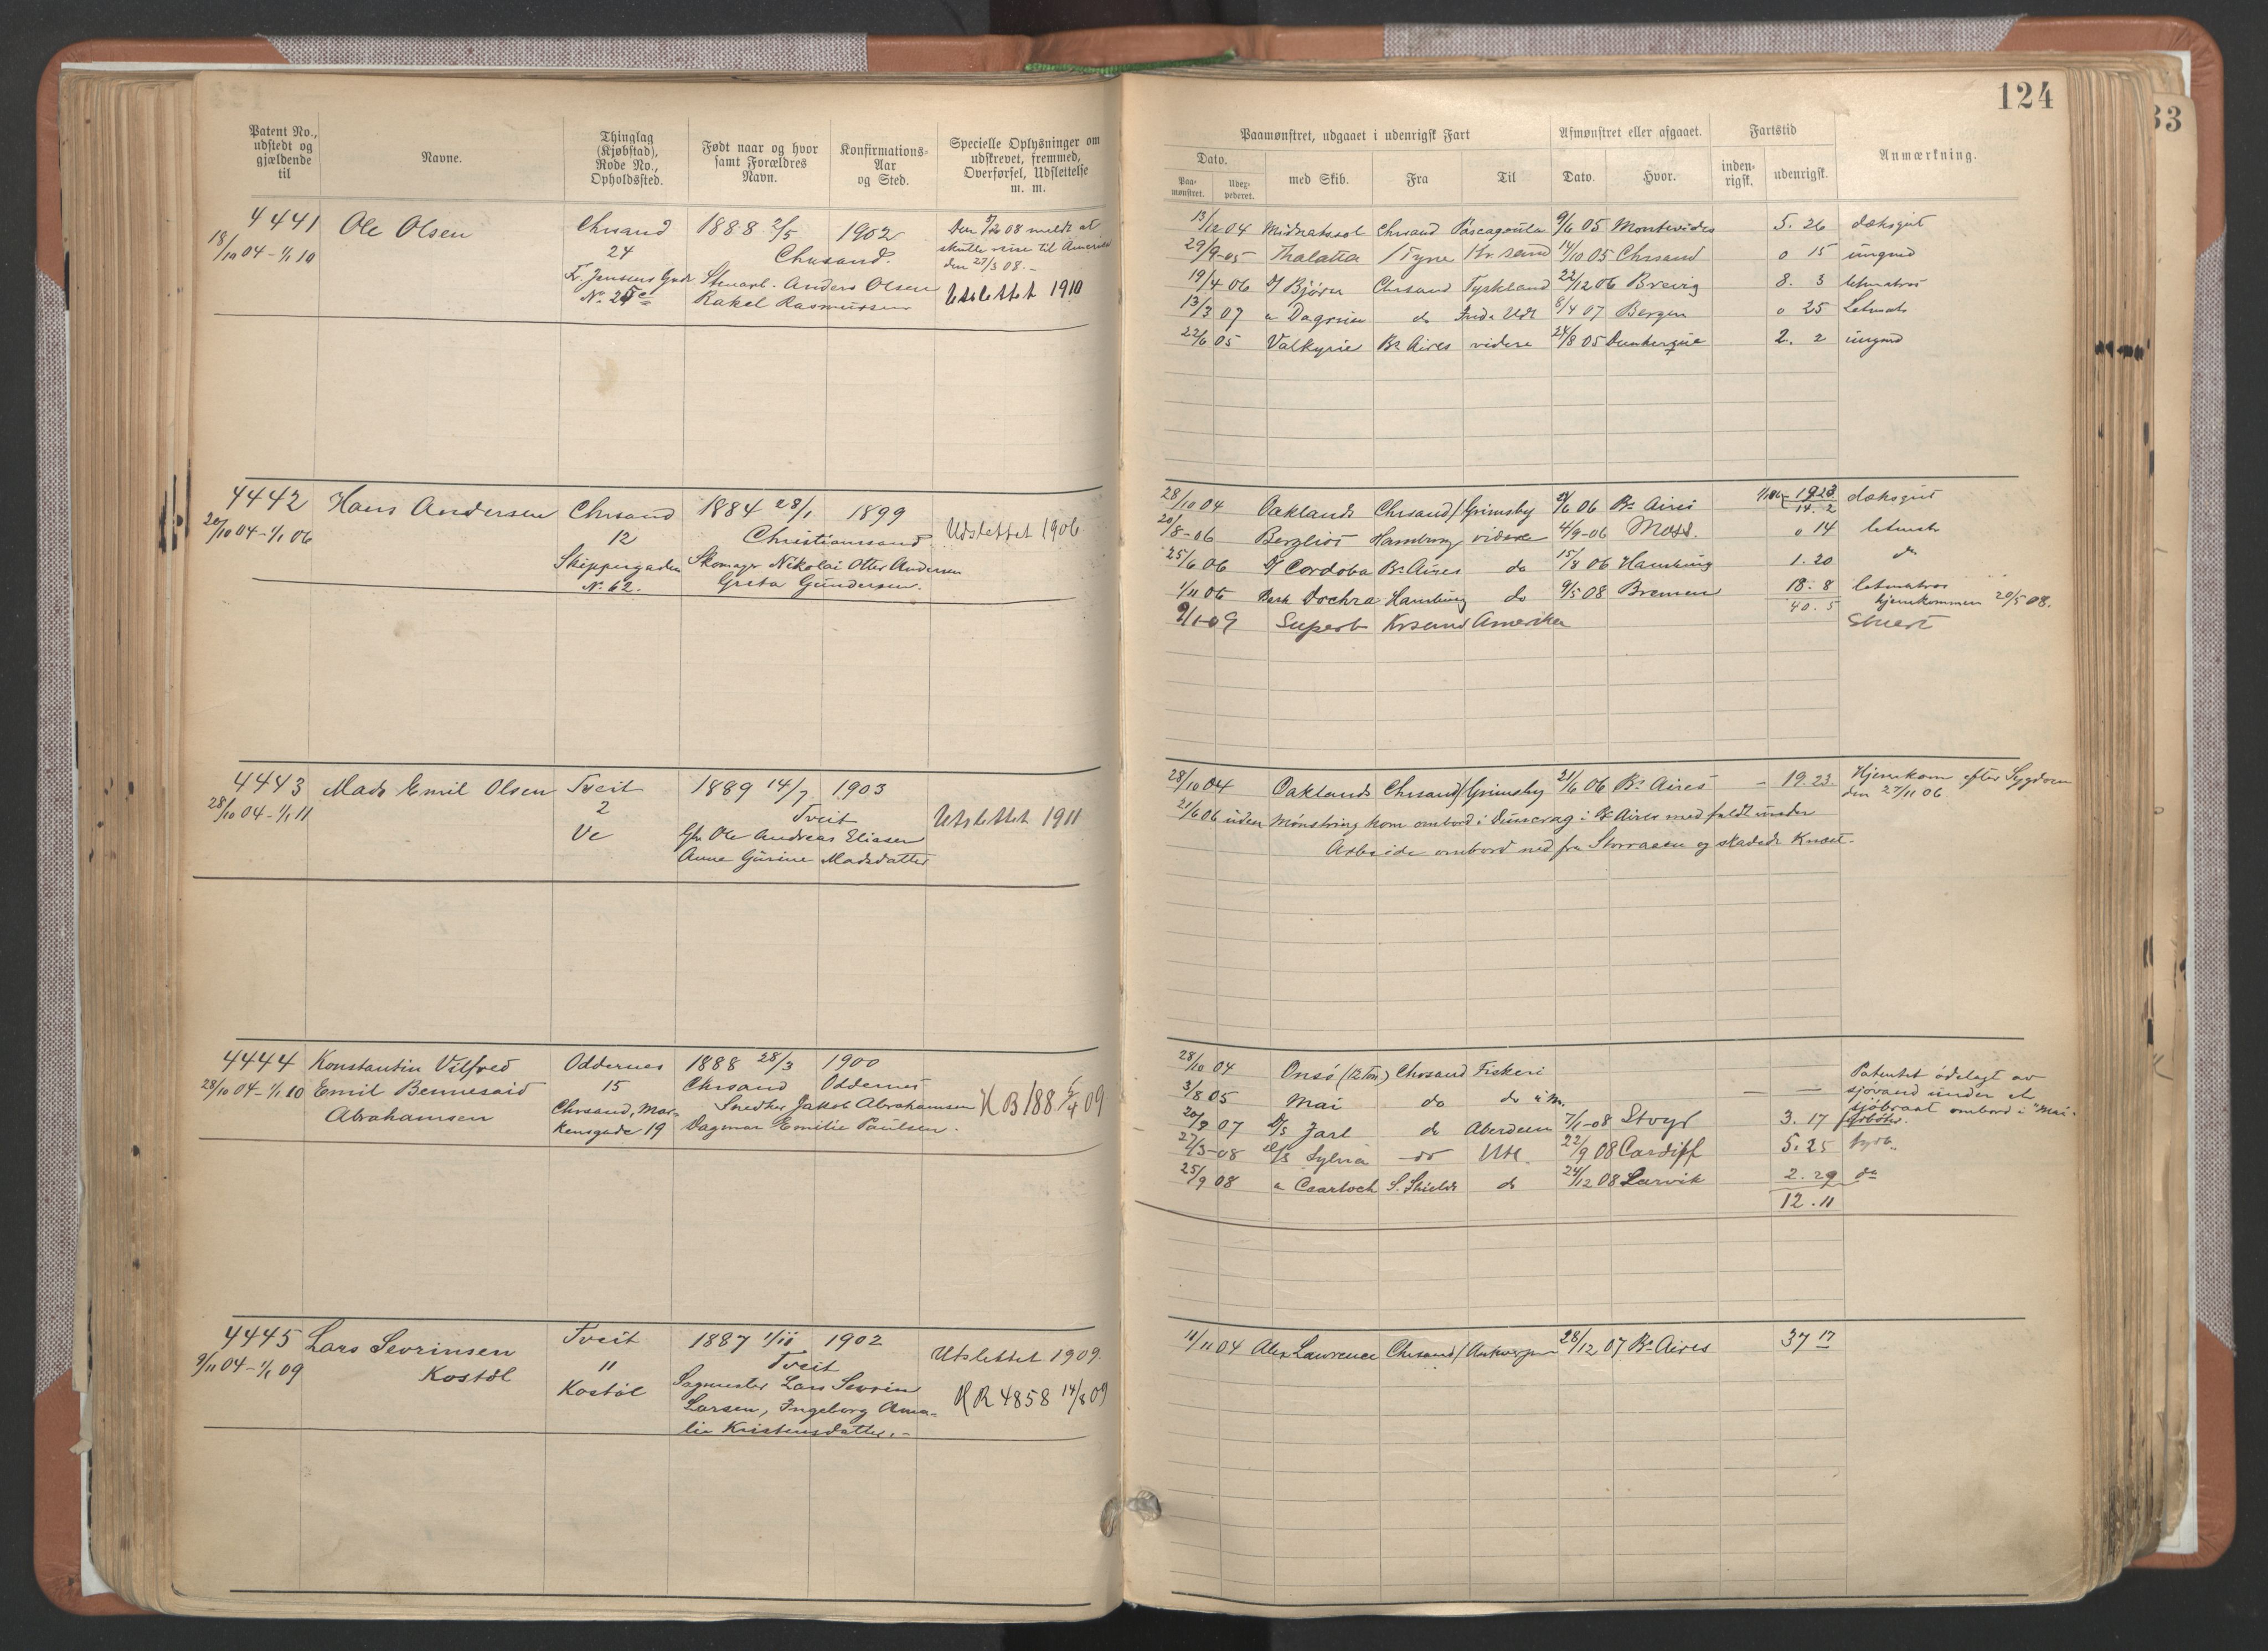 124
33
Patent No., udstedt og gjældende til
Navne.
Thinglag (Kjøbstad), Rode No., Opholdssted.
Født naar og hvor samt Forældres Navn.
Konfirmations-Aar og Sted.
Specielle Oplysninger om udskrevet, fremmed, Overførsel, Udslettelse m. m.
Paamønstret, udgaaet i udenrigsk Fart
Afmønstret eller afgaaet.
Fartstid
Anmærkning.
Dato.
Paa-mønstret.
Udex-pederet.
med Skib.
Fra
Til
Dato.
Hvor.
inden-rigsk.
udenrigsk.
4441 Ole Olsen Chrsand 1888 2/5 1902 Den 7/2 08 meldt at
18/10 04 - 1/1 10 24 Chrsand. skulle reise til Amerika
den 27/3 08. -
Fr. Jensens Gade Stenarb. Anders Olsen Udslettet 1910
No. 25 Rakel Rasmussen
13/12 04 Midnatssol Chrsand Pascagoula 9/6 05 Montevideo 5. 26 dæksgut
29/9-05 Thalatta /Tyne Kr.sand 14/10 05 Chrsand 0 15 ungmd
19/4 06 D/ Bjørn Chrsand Tyskland 22/12 06 Brevig 8. 3 letmatros
13/3 07 " Dagrun do Inds Udl 8/4 07 Bergen 0 25 Letmats
22/6 05 Valkyrie Bs Aires videre 24/8 05 Dunkerque 2. 2 ungmd
4442 Hans Andersen Chrsand 1884 28/1 1899
20/10 04 - 1/1 06 12 Christianssand Udslettet 1906
Skippergaden Skomager Nikolai Otter Andersen
No. 62. Greta Gundersen.
28/10 04 Oaklands Chrsand/Grimsby 21/6 06 Bs Aires 1/1 06 - 19 23 dæksgut
14. 2
20/8-06 Bergliot Hamburg videre 4/9-06 Moss. 0 14 letmatr
25/6 06 D/ Cordoba Bs Aires do 15/8 06 Hamburg 1. 20 do
1/11 06 Bark Dochra Hamburg do 9/5 08 Bremen 18. 8 letmatros
40. 5 hjemkommen 20/5 08.
9/1-09 Superb Krsand Amerika Stuert
4443 Mads Emil Olsen Tveit 1889 14/7 1903
28/10 04 - 1/1 11 2 Tveit Udslettet 1911
Ve Gbr Ole Andreas Eliasen
Anne Gurine Madsdatter
28/10 04 Oaklands Chrsand/Grimsby 21/6 06 Bs Aires - 19. 23. Hjemkom efter Sygdom
den 27/11 06
21/6 06 uden Mønstring kom ombord i Dunerag i Bs Aires med faldt under
Arbeide ombord ned fra Storraaen og skadede Knæet.
4444 Konstantin Vilfred Oddernes 1888 28/3 1900
28/10 04 - 1/1 10 Emil Bennesaid 15 Chrsand Oddernes
Abrahamsen Chrsand, Mar- Snedker Jakob Abrahamsen H B 188 6/4 09
kensgade 19 Dagmar Emilie Paulsen.
28/10 04 Onsø (12 Ton) Chrsand Fiskeri
3/8 05 Mai do do i M. Patentet ødelagt av
sjøvand under et
sjøbraat ombord i "Mai".
20/9 07 D/S Jarl do Aberdeen 7/1-08 Stvgr 3. 17 fyrbøter.
27/3-08 D/S Sylvia do Udl. 22/9 08 Cardiff 5. 25 fyrb.
25/9 08 " Caarloch S. Shields do 24/12 08 Larvik 2. 29 do
12. 11
4445 Lars Sevrinsen Tveit 1887 1/11 1902 Udslettet 1909.
9/11 04 - 1/1 09 Kostøl 11 Tveit
Kostøl Sagmester Lars Sevrin H R 4858 14/8 09
Larsen, Ingeborg Ama-
lie Kristensdatter. -
11/11 04 Alex Lawrence Chrsand/Antwerpen 28/12 07 Bs Aires 37 17